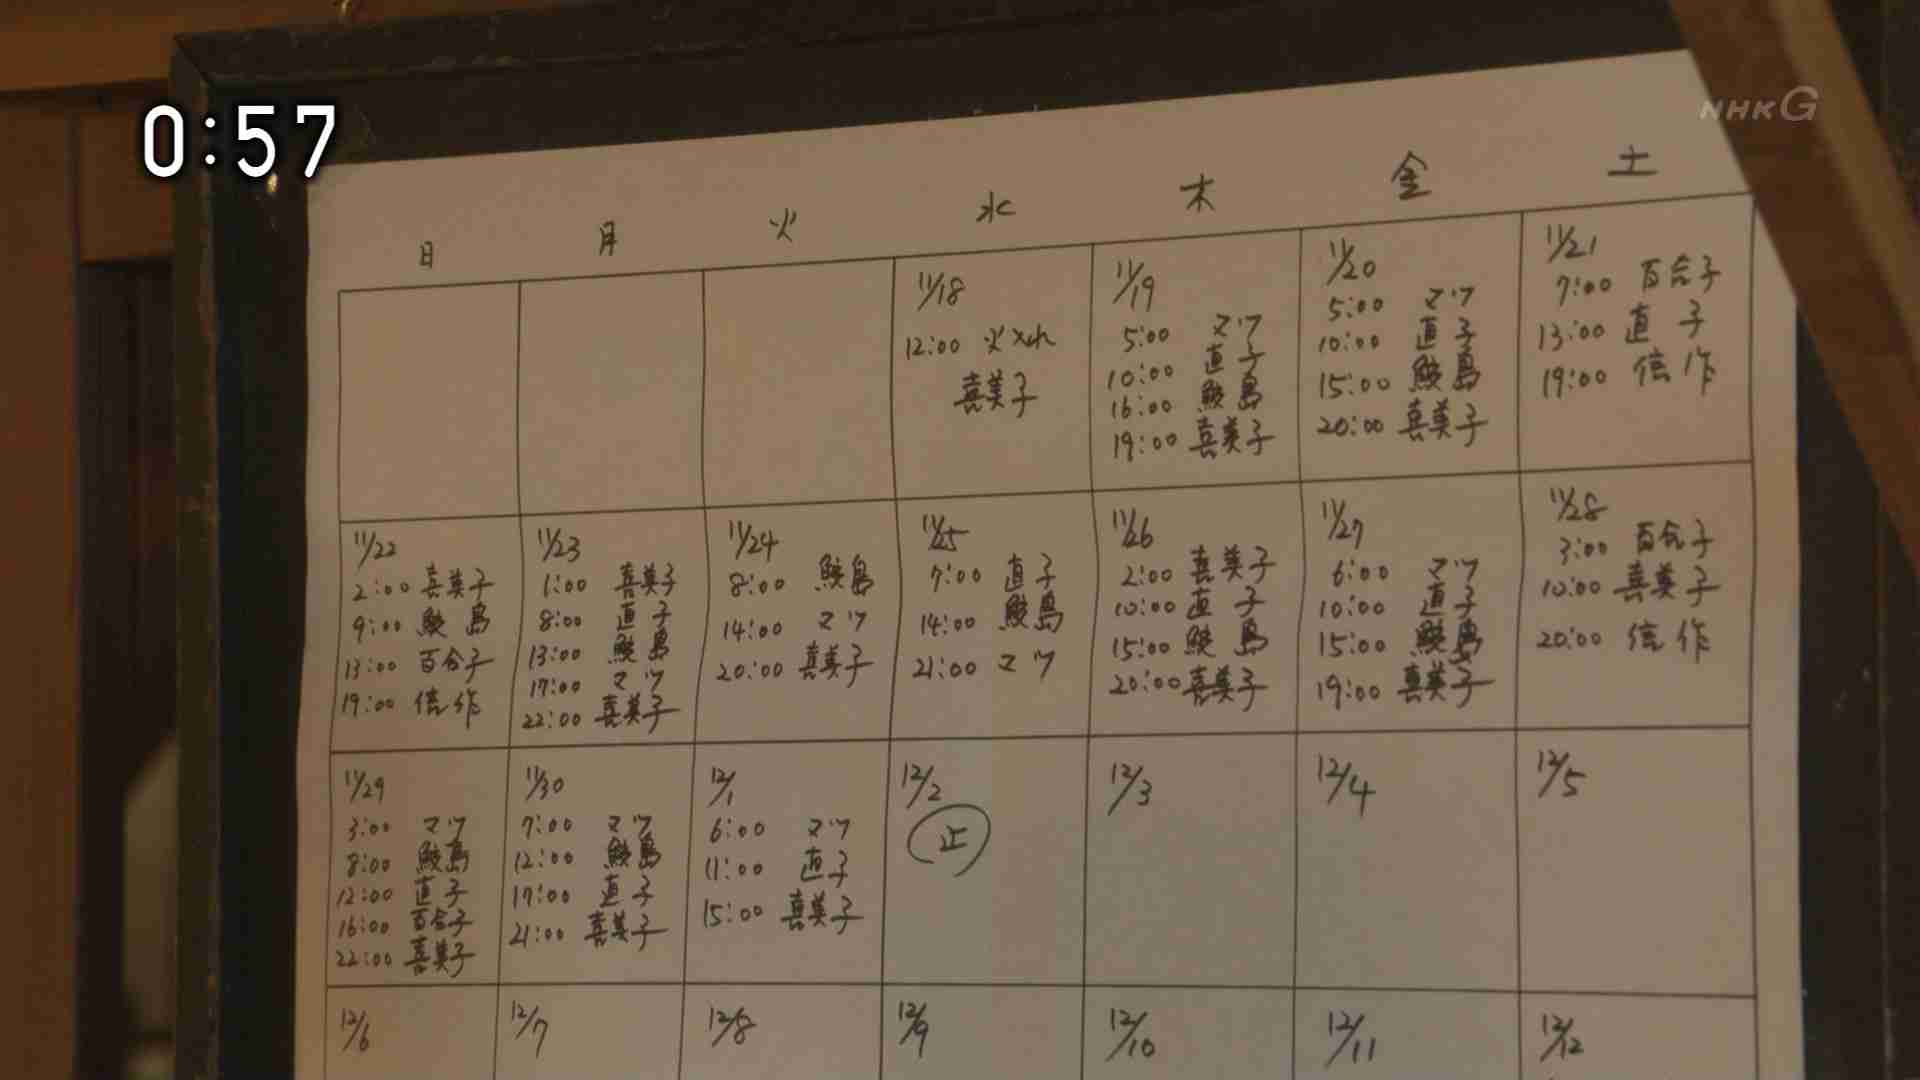 0:57
NHK G
日 月 火 水 木 金 土
11/18
12:00 火入れ
喜美子
11/19
5:00 マツ
10:00 直子
16:00 鮫島
19:00 喜美子
11/20
5:00 マツ
10:00 直子
15:00 鮫島
20:00 喜美子
11/21
7:00 百合子
13:00 直子
19:00 信作
11/22
2:00 喜美子
9:00 鮫島
13:00 百合子
19:00 信作
11/23
1:00 喜美子
8:00 直子
13:00 鮫島
17:00 マツ
22:00 喜美子
11/24
8:00 鮫島
14:00 マツ
20:00 喜美子
11/25
7:00 直子
14:00 鮫島
21:00 マツ
11/26
2:00 喜美子
10:00 直子
15:00 鮫島
20:00 喜美子
11/27
6:00 マツ
10:00 直子
15:00 鮫島
19:00 喜美子
11/28
3:00 百合子
10:00 喜美子
20:00 信作
11/29
3:00 マツ
8:00 鮫島
12:00 直子
16:00 百合子
22:00 喜美子
11/30
7:00 マツ
12:00 鮫島
17:00 直子
21:00 喜美子
12/1
6:00 マツ
11:00 直子
15:00 喜美子
12/2
止
12/3
12/4
12/5
12/6
12/7
12/8
12/9
12/10
12/11
12/12